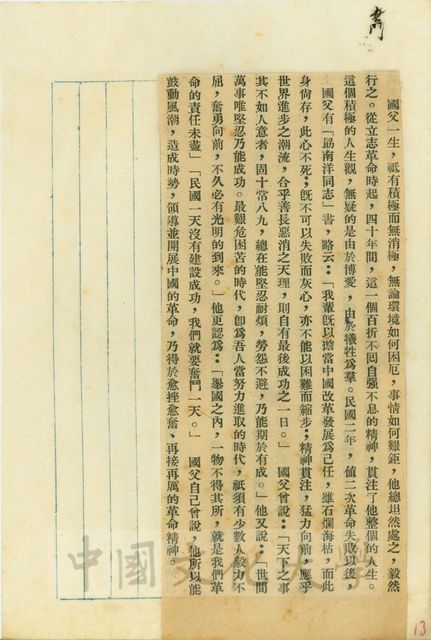 國父一生，祇有積極而無消極，無論環境如何困厄，事情如何艱鉅，他總坦然處之，毅然
行之。從立志革命時起，四十年間，這一個百折不回自強不息的精神，貫注了他整個的人生。
這個積極的人生觀，無疑的是由於博愛，由於犧牲爲羣。民國二年，值二次革命失敗以後，
國父有「勗南洋同志」書，略云：「我輩既以擔當中國改革發展爲己任，雖石爛海枯，而此
身尙存，此心不死；既不可以失敗而灰心，亦不能以困難而縮步；精神貫注，猛力向前，應乎
世界進步之潮流，合乎善長惡消之天理，則自有最後成功之一日。」　國父曾說：「天下之事
其不如人意者，固十常八九，總在能堅忍耐煩，勞怨不避，乃能期於有成。」他又説：「世間
萬事唯堅忍乃能成功。最艱危困苦的時代，卽爲吾人當努力進取的時代，祇須有少數人毅力不
屈，奮勇向前，不久必有光明的到來。」他更認爲：「舉國之內，一物不得其所，就是我們革
命的責任未盡」「民國一天沒有建設成功，我們就要奮鬥一天。」　國父自己曾說，他所以能
鼓動風潮，造成時勢，領導並開展中國的革命，乃得於愈挫愈奮、再接再厲的革命精神。
中國文化大學
13